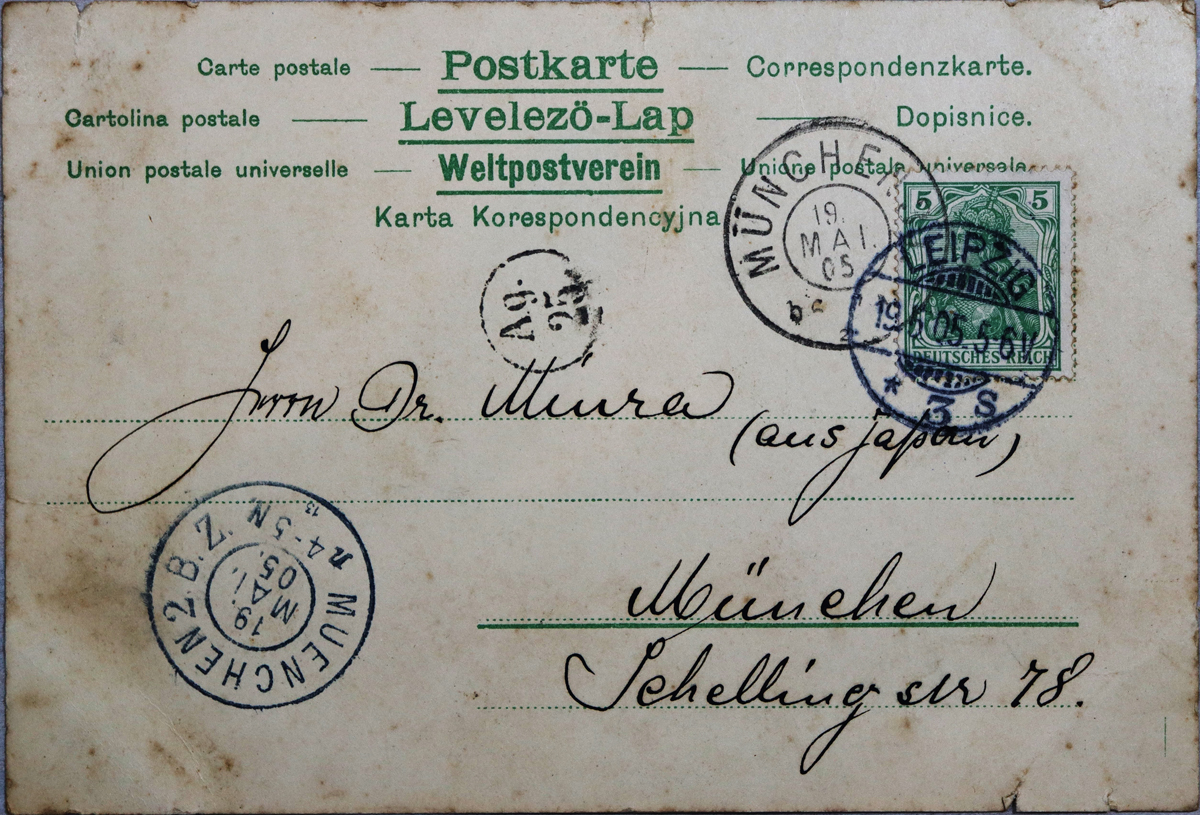 Carte postale — Postkarte — Correspondenzkarte.
Cartolina postale — Levelező-Lap — Dopisnice.
Union postale universelle Weltpostverein — Unione postale universale.
Karta Korespondencyjna
MÜNCHEN
19.
MAI.
05
5 5
DEUTSCHES REICH
LEIPZIG
19.5.05.5-6V.
* 3 S
Ag.
25
Herrn Dr. Miura
(aus Japan)
MUENCHEN 2 B.Z.
19.
MAI.
05.
4-5 N
München
Schellingstr 78.